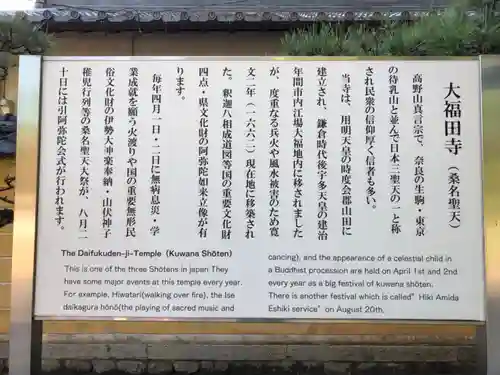 大福田寺（桑名聖天）
高野山真言宗で、奈良の生駒・東京
の待乳山と並んで日本三聖天の一と称
され民衆の信仰厚く信者も多い。
当寺は、用明天皇の時度会郡山田に
建立され、鎌倉時代後宇多天皇の建治
年間市内江場大福地内に移されました
が、度重なる兵火や風水被害のため寛
文二年（一六六二）現在地に移築され
た。釈迦八相成道図等国の重要文化財
四点・県文化財の阿弥陀如来立像が有
ります。
毎年四月一日・二日に無病息災・学
業成就を願う火渡りや国の重要無形民
俗文化財の伊勢大神楽奉納・山伏神子
稚児行列等の桑名聖天大祭が、八月二
十日には引阿弥陀会式が行われます。
The Daifukuden-ji-Temple (Kuwana Shōten)
This is one of the three Shōtens in japan They
have some major events at this temple every year.
For example, Hiwatari(walking over fire), the Ise
daikagura hōnō(the playing of sacred music and
cancing), and the appearance of a celestial child in
a Buddhist procession are held on April 1st and 2nd
every year as a big festival of kuwena shōten.
There is another festival which is called" Hiki Amida
Eshiki service" on August 20th.